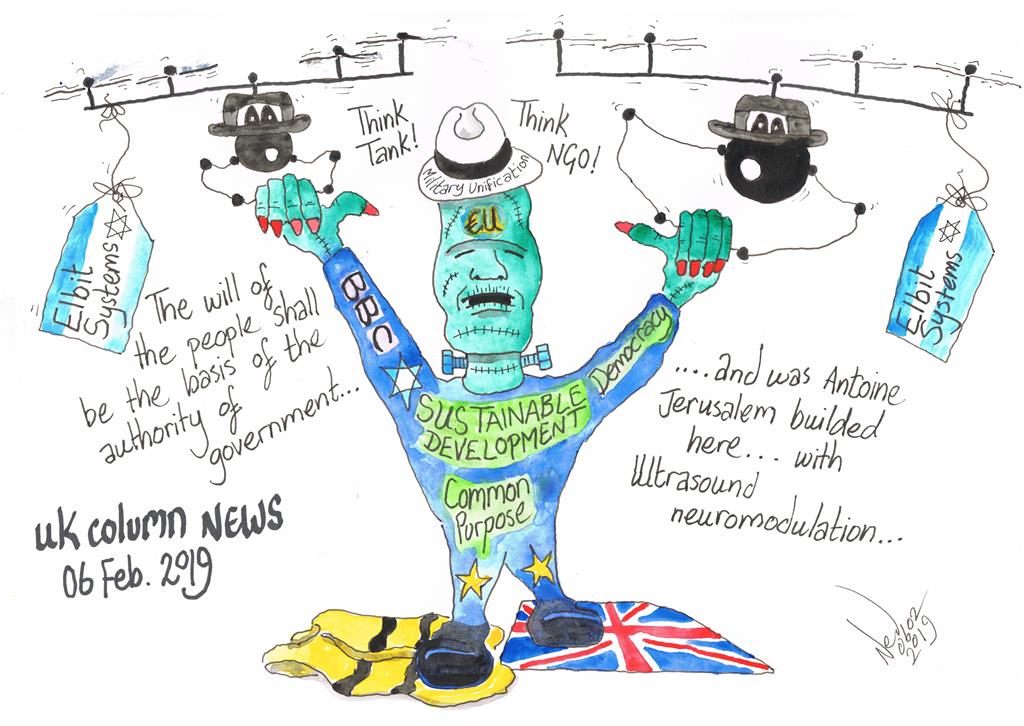 Think
Tank!
Think
NGO!
Military Unification
€U
Elbit
Systems
Elbit
Systems
BBC
Democracy
SUSTAINABLE
DEVELOPMENT
Common
Purpose
The will of
the people shall
be the basis of the
authority of
government...
....and was Antoine
Jerusalem builded
here... with
Ultrasound
neuromodulation...
UK column NEWS
06 Feb. 2019
06 02
2019